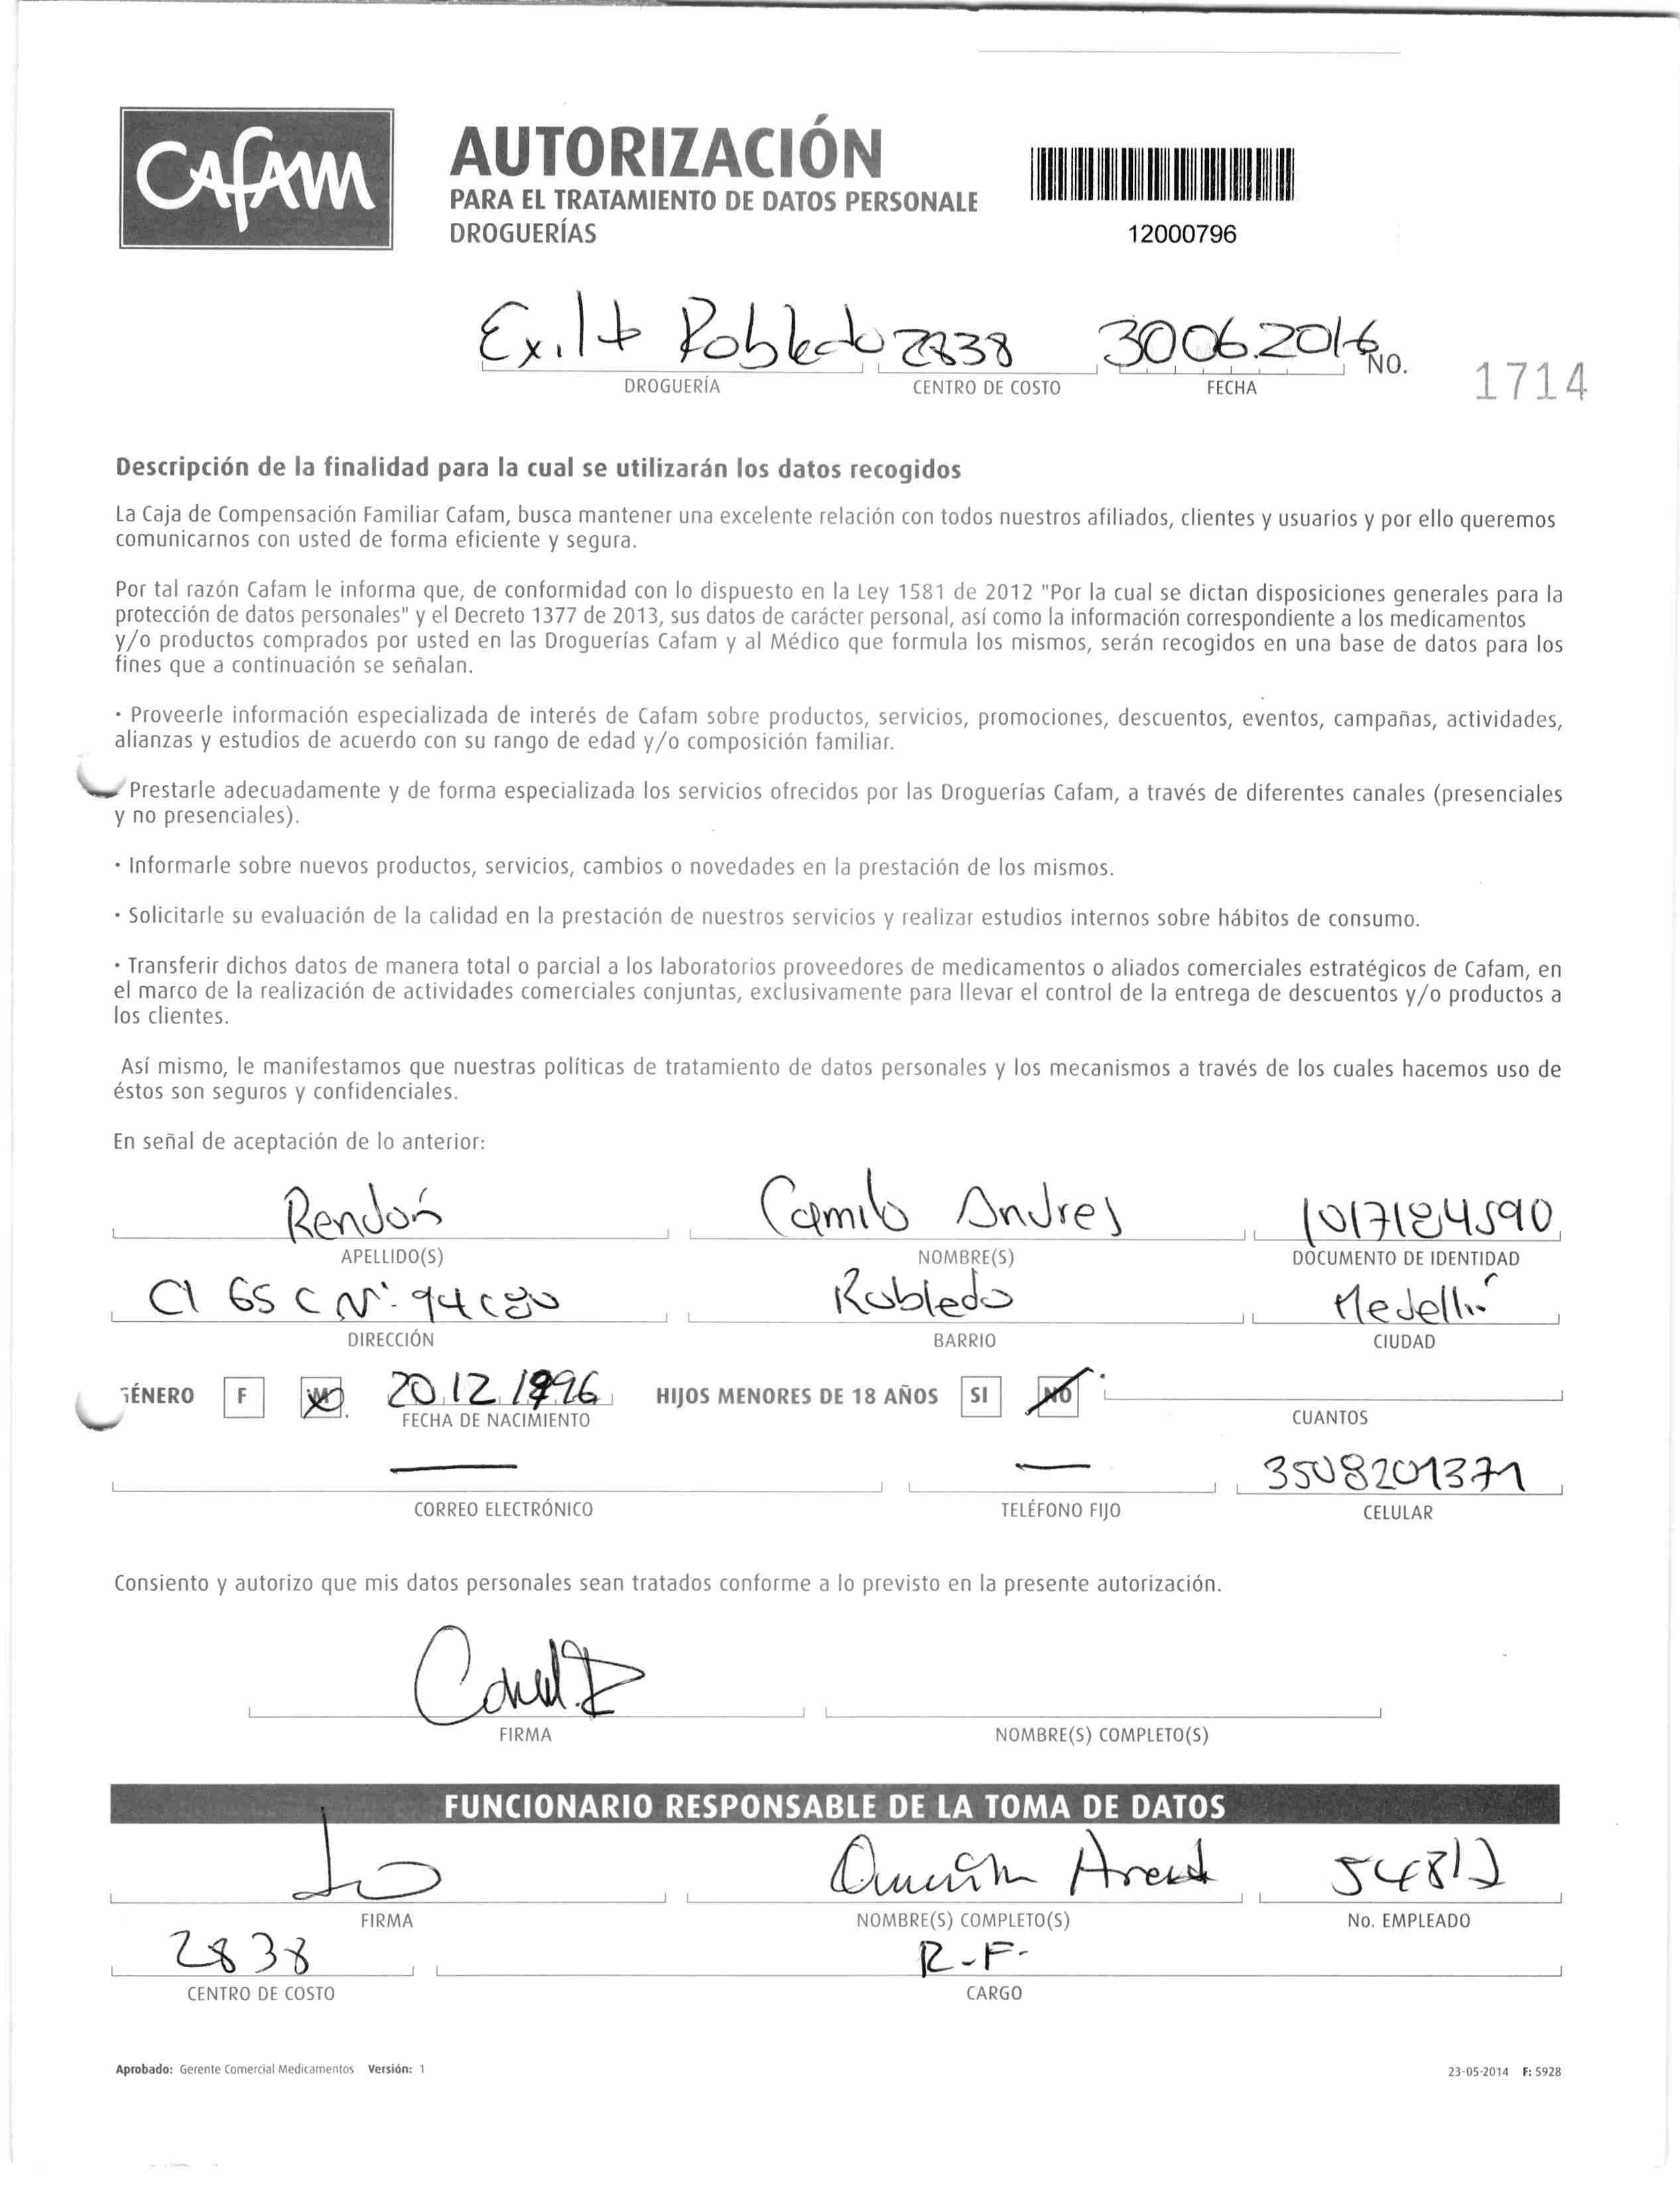 CAFAM
AUTORIZACIÓN
PARA EL TRATAMIENTO DE DATOS PERSONALE
DROGUERÍAS
12000796
Robledo 2838 30 06 2016
DROGUERÍA CENTRO DE COSTO FECHA NO. 1714
Descripción de la finalidad para la cual se utilizarán los datos recogidos
La Caja de Compensación Familiar Cafam, busca mantener una excelente relación con todos nuestros afiliados, clientes y usuarios y por ello queremos
comunicarnos con usted de forma eficiente y segura.
Por tal razón Cafam le informa que, de conformidad con lo dispuesto en la Ley 1581 de 2012 "Por la cual se dictan disposiciones generales para la
protección de datos personales" y el Decreto 1377 de 2013, sus datos de carácter personal, así como la información correspondiente a los medicamentos
y/o productos comprados por usted en las Droguerías Cafam y al Médico que formula los mismos, serán recogidos en una base de datos para los
fines que a continuación se señalan.
· Proveerle información especializada de interés de Cafam sobre productos, servicios, promociones, descuentos, eventos, campañas, actividades,
alianzas y estudios de acuerdo con su rango de edad y/o composición familiar.
Prestarle adecuadamente y de forma especializada los servicios ofrecidos por las Droguerías Cafam, a través de diferentes canales (presenciales
y no presenciales).
· Informarle sobre nuevos productos, servicios, cambios o novedades en la prestación de los mismos.
· Solicitarle su evaluación de la calidad en la prestación de nuestros servicios y realizar estudios internos sobre hábitos de consumo.
· Transferir dichos datos de manera total o parcial a los laboratorios proveedores de medicamentos o aliados comerciales estratégicos de Cafam, en
el marco de la realización de actividades comerciales conjuntas, exclusivamente para llevar el control de la entrega de descuentos y/o productos a
los clientes.
Así mismo, le manifestamos que nuestras políticas de tratamiento de datos personales y los mecanismos a través de los cuales hacemos uso de
éstos son seguros y confidenciales.
En señal de aceptación de lo anterior:
Rendón Camilo Andres 1017184590
APELLIDO(S) NOMBRE(S) DOCUMENTO DE IDENTIDAD
Cl 65 C N° 94 C 80 Robledo Medellín
DIRECCIÓN BARRIO CIUDAD
GÉNERO F M 20 12 1996 HIJOS MENORES DE 18 AÑOS SI NO
FECHA DE NACIMIENTO CUANTOS
— — 3508201371
CORREO ELECTRÓNICO TELÉFONO FIJO CELULAR
Consiento y autorizo que mis datos personales sean tratados conforme a lo previsto en la presente autorización.
FIRMA NOMBRE(S) COMPLETO(S)
FUNCIONARIO RESPONSABLE DE LA TOMA DE DATOS
FIRMA NOMBRE(S) COMPLETO(S) No. EMPLEADO
2838 R-F-
CENTRO DE COSTO CARGO
Aprobado: Gerente Comercial Medicamentos Versión: 1 23-05-2014 F: 5928